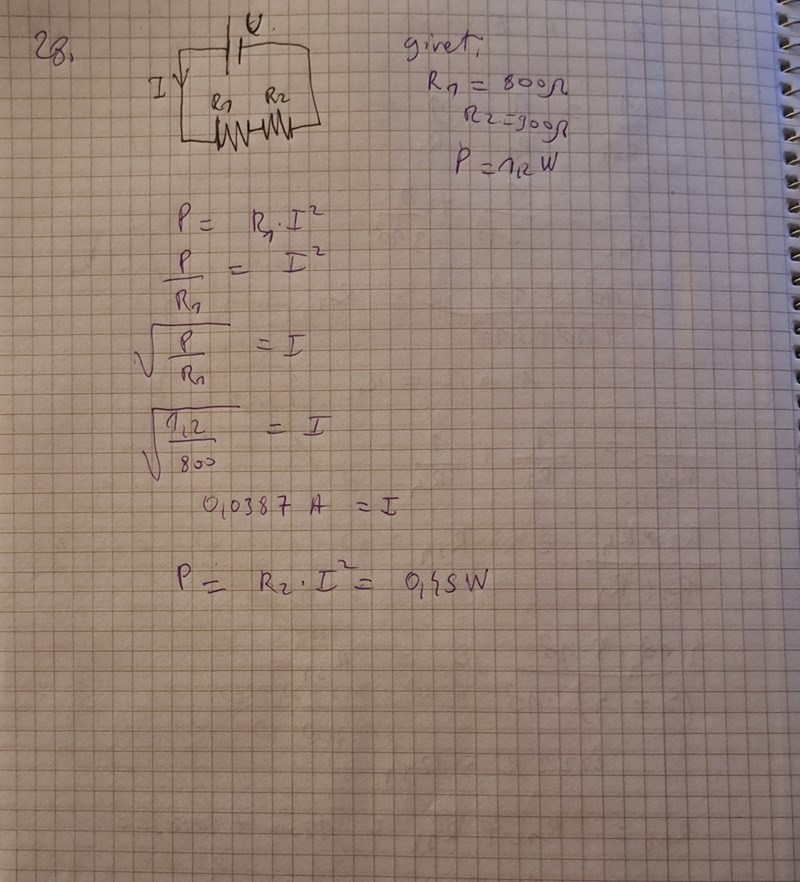 28.
U
givet;
I
R₁ R₂
R₁ = 800Ω
R₂ = 300Ω
P = 1,2 W
P = R₁ · I²
P/R₁ = I²
√(P/R₁) = I
√(1,2/800) = I
0,0387 A = I
P = R₂ · I² = 0,45 W